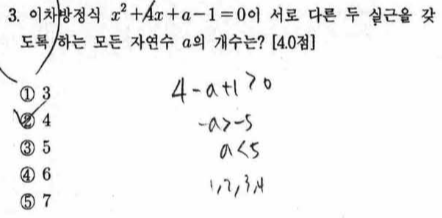 3. 이차방정식 x²+4x+a-1=0이 서로 다른 두 실근을 갖
도록 하는 모든 자연수 a의 개수는? [4.0점]
① 3
② 4
③ 5
④ 6
⑤ 7
4-a+1>0
-a>-5
a<5
1,2,3,4